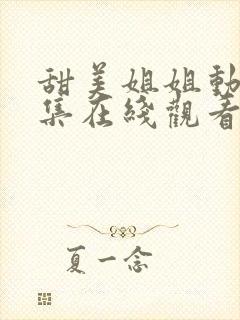 甜美姐姐動
集在綫觀看
夏一念